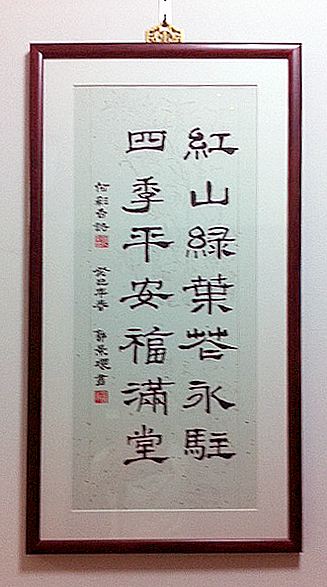 紅山緑葉花永駐
四季平安福滿堂
癸巳年春